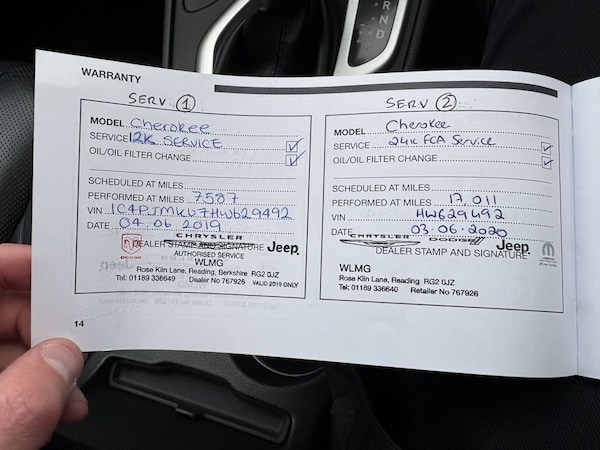 R
N
D
WARRANTY
SERV 1
MODEL Cherokee
SERVICE 12K SERVICE
OIL/OIL FILTER CHANGE
SCHEDULED AT MILES
PERFORMED AT MILES 7587
VIN 1C4PJMKU7HW629492
DATE 04 06 2019
CHRYSLER
DEALER STAMP AND SIGNATURE Jeep
DODGE
AUTHORISED SERVICE
WLMG
Rose Kiln Lane, Reading, Berkshire RG2 0JZ
Tel: 01189 336649 Dealer No 767926 VALID 2019 ONLY
14
SERV 2
MODEL Cherokee
SERVICE 24K FCA Service
OIL/OIL FILTER CHANGE
SCHEDULED AT MILES
PERFORMED AT MILES 17,011
VIN HW629492
DATE 03.06.2020
CHRYSLER DODGE Jeep
DEALER STAMP AND SIGNATURE
WLMG
Rose Kiln Lane, Reading RG2 0JZ
Tel: 01189 336640 Retailer No 767926